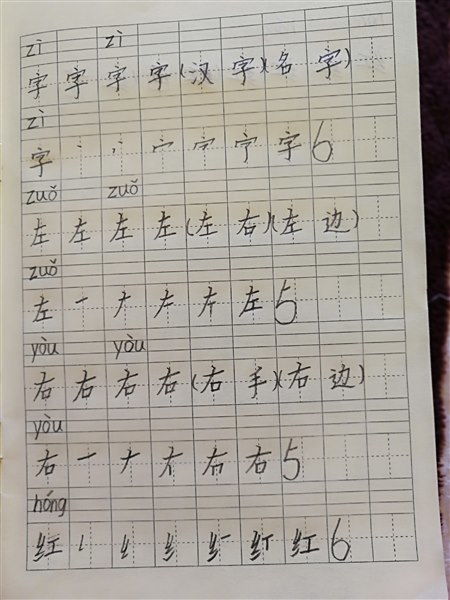 zì zì
字 字 字 字(汉 字)(名 字)
zì
字 丶 丷 宀 宁 字 字 6
zuǒ zuǒ
左 左 左 左(左 右)(左 边)
zuǒ
左 一 ナ 𠂇 左 左 5
yòu yòu
右 右 右 右(右 手)(右 边)
yòu
右 一 ナ 右 右 5
hóng
红 纟 红 红 6